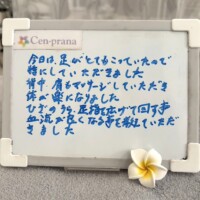 Cen-prana
今日は、足がとてもこっていたので
特にしていただきました
背中 肩もマッサージしていただき
体が楽になりました
ひざのうら、足指を広げて回す事
血流が良くなる事を教えていただ
きました